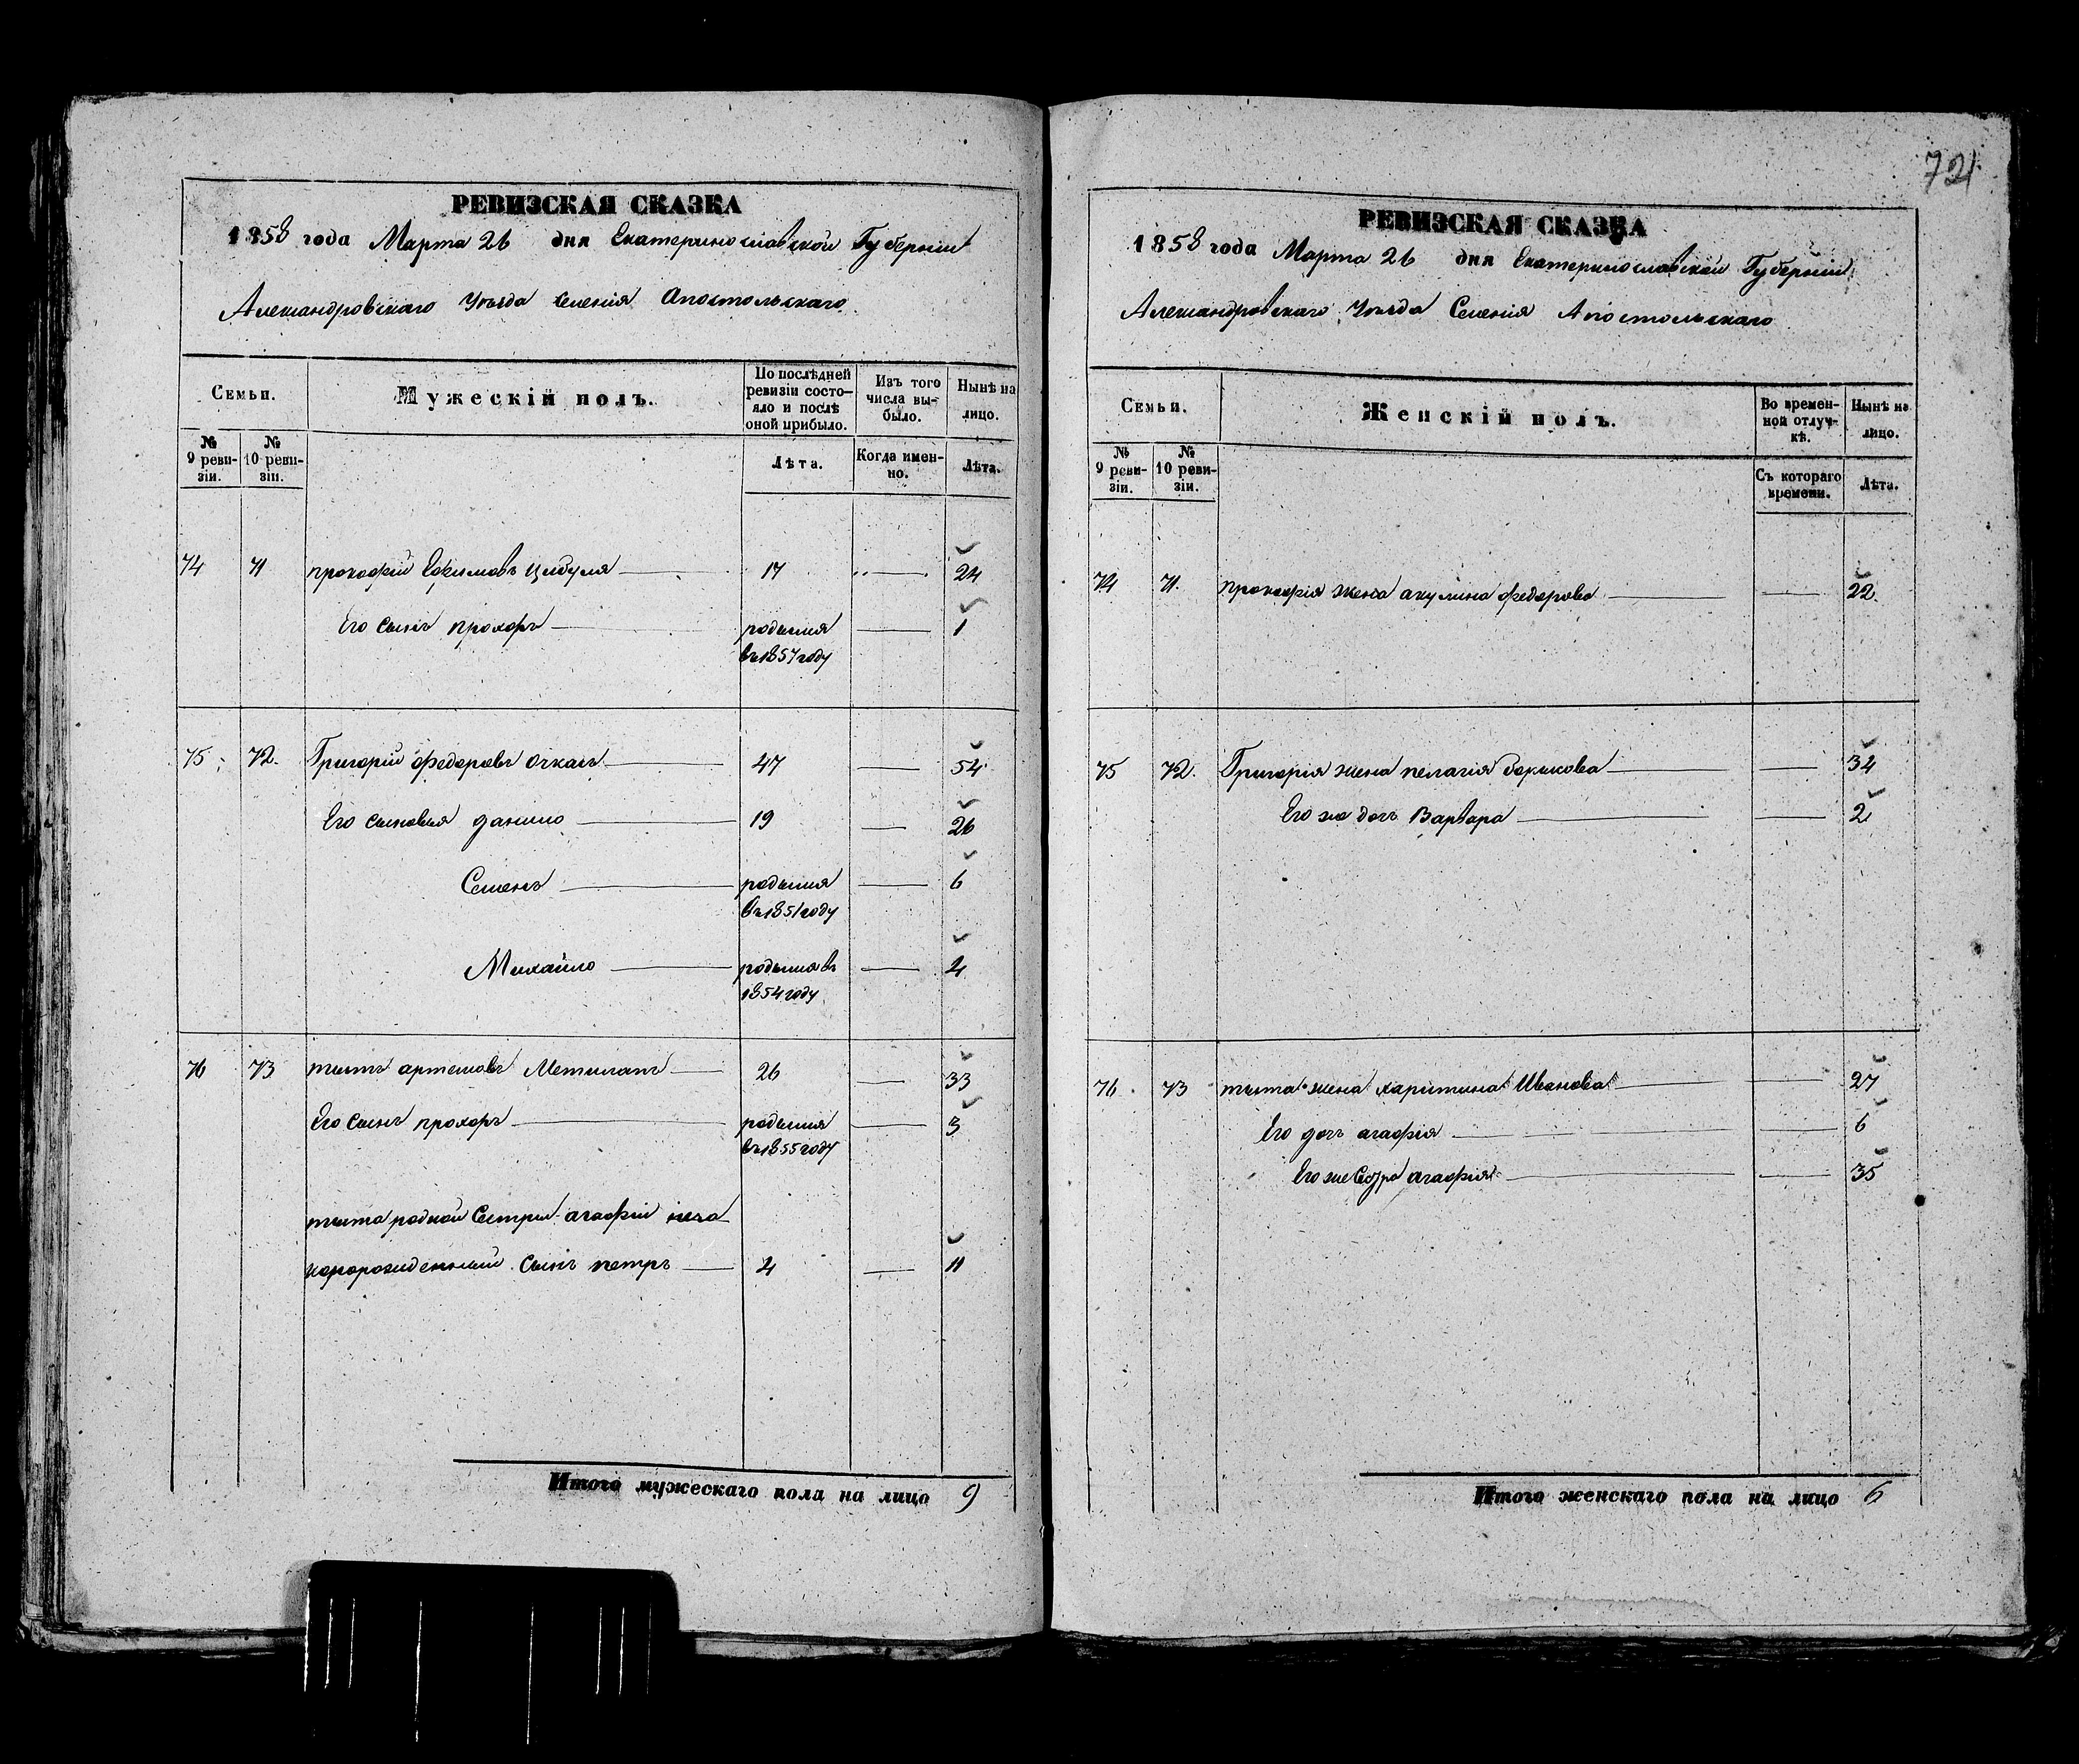 РЕВИЗСКАЯ СКАЗКА
1858 года Марта 26 дня Екатеринославской Губерніи
Александровскаго Уѣзда Селенія Апостольскаго
Семьи.
Мужескій полъ.
По послѣдней ревизіи состояло и послѣ оной прибыло.
Изъ того числа выбыло.
Нынѣ на лицо.
№ 9 ревизіи.
№ 10 ревизіи.
Лѣта.
Когда именно.
Лѣта.
74 71 прокофій Ефимовъ Цибуля 17 24
Его Сынъ прохоръ родился 1
въ 1857 году
75 72. Григорій федоровъ 47 54
Его сыновья данило 19 26
Семенъ родился 6
въ 1851 году
Михайло родился въ 4
1854 году
76 73 титъ артемовъ 26 33
Его Сынъ прохоръ родился 3
въ 1855 году
тита родной Сестры агафіи неза
коророжденный Сынъ петръ 4 11
Итого мужескаго пола на лицо 9
721
РЕВИЗСКАЯ СКАЗКА
1858 года Марта 26 дня Екатеринославской Губерніи
Александровскаго Уѣзда Селенія Апостольскаго
Семьи.
Женскій полъ.
Во временной отлучкѣ.
Нынѣ на лицо.
№ 9 ревизіи.
№ 10 ревизіи.
Съ котораго времени.
Лѣта.
74 71. прокофія жена акулина федорова 22
75 72. Григорія жена пелагія 34
Его же дочь Варвара 2
76 73 тита жена харитина Иванова 27
Его дочь агафія 6
Его же Сестра агафія 35
Итого женскаго пола на лицо 6